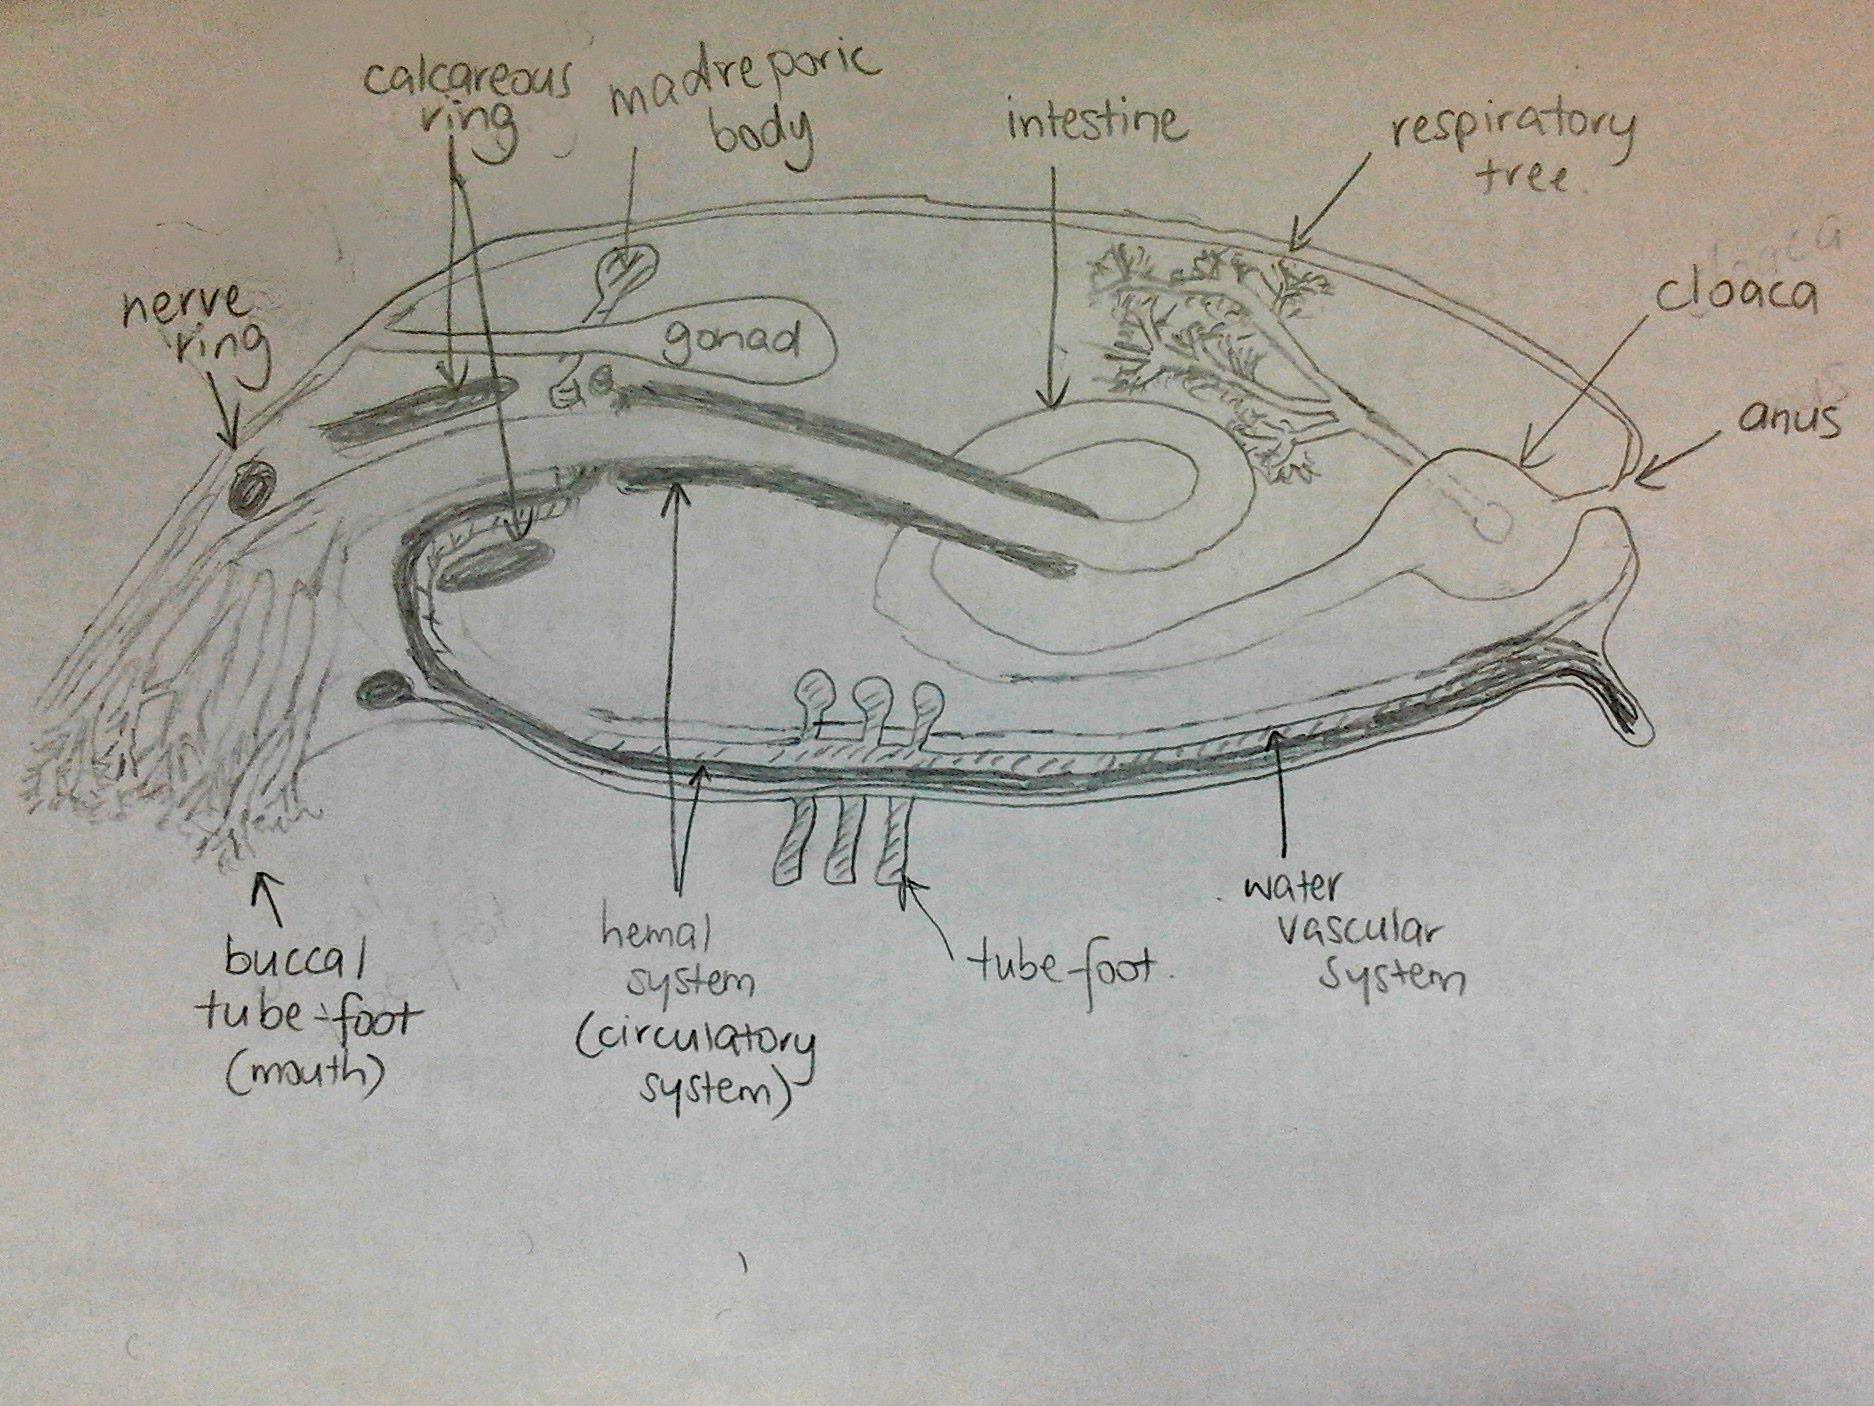 calcareous
ring
madreporic
body
intestine
respiratory
tree.
nerve
ring
gonad
cloaca
anus
buccal
tube-foot
(mouth)
hemal
system
(circulatory
system)
tube-foot.
water
vascular
system
cloaca